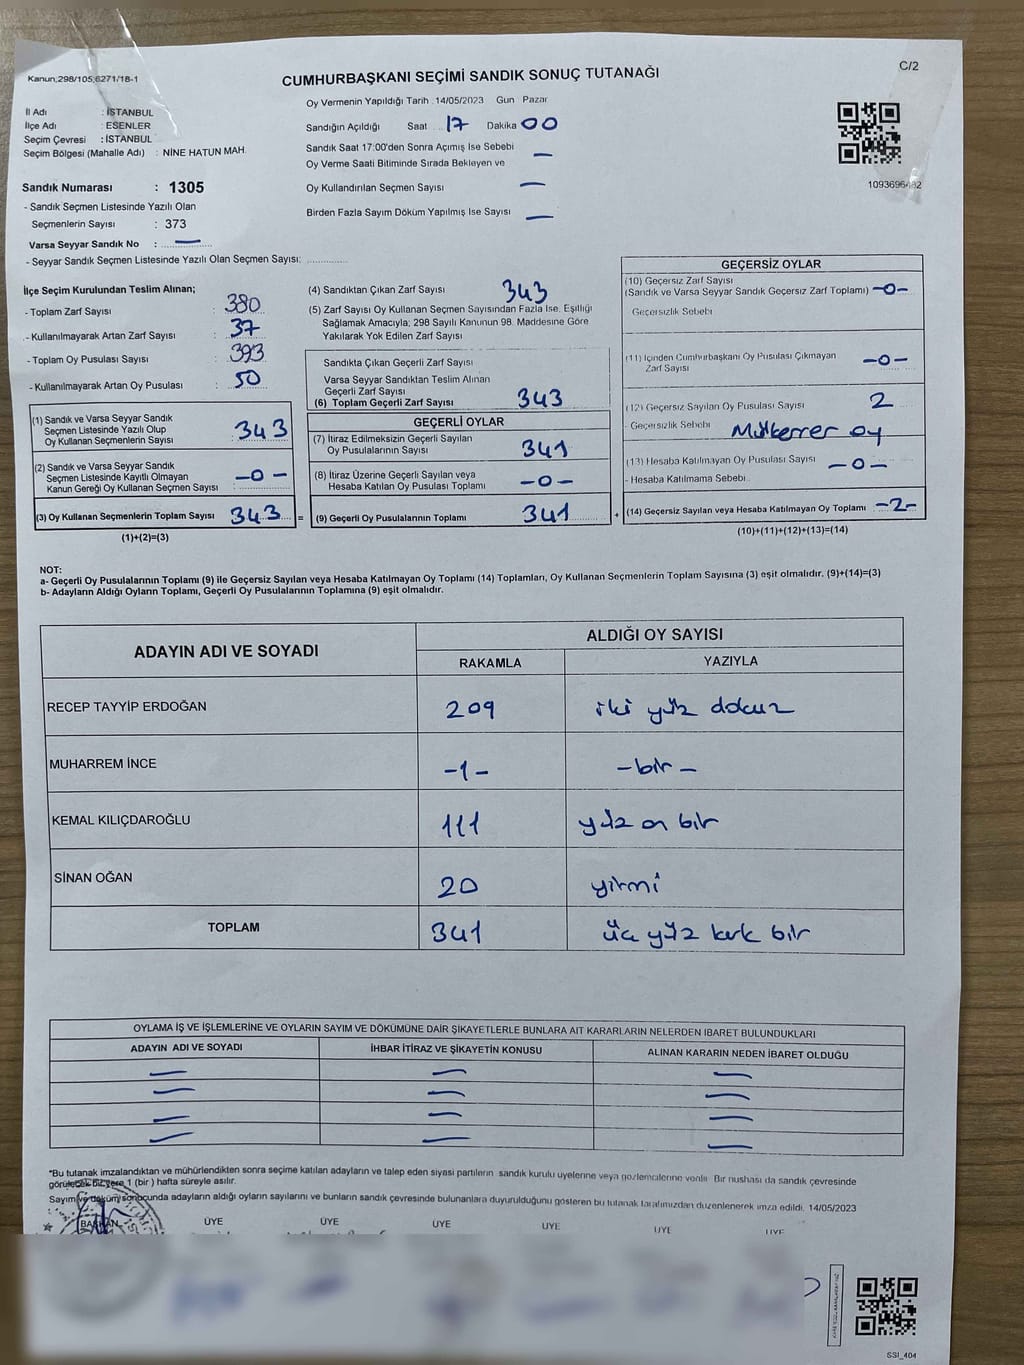 Kanun;298/105,6271/18-1
CUMHURBAŞKANI SEÇİMİ SANDIK SONUÇ TUTANAĞI
C/2
İl Adı : İSTANBUL
İlçe Adı : ESENLER
Seçim Çevresi : İSTANBUL
Seçim Bölgesi (Mahalle Adı) : NİNE HATUN MAH.
Sandık Numarası : 1305
- Sandık Seçmen Listesinde Yazılı Olan
Seçmenlerin Sayısı : 373
Varsa Seyyar Sandık No : —
- Seyyar Sandık Seçmen Listesinde Yazılı Olan Seçmen Sayısı: ............
Oy Vermenin Yapıldığı Tarih : 14/05/2023 Gun Pazar
Sandığın Açıldığı Saat 17 Dakika 00
Sandık Saat 17:00'den Sonra Açımış İse Sebebi —
Oy Verme Saati Bitiminde Sırada Bekleyen ve
Oy Kullandırılan Seçmen Sayısı —
Birden Fazla Sayım Döküm Yapılmış Ise Sayısı —
1093696482
İlçe Seçim Kurulundan Teslim Alınan;
- Toplam Zarf Sayısı : 380
- Kullanılmayarak Artan Zarf Sayısı : 37
- Toplam Oy Pusulası Sayısı : 393
- Kullanılmayarak Artan Oy Pusulası : 50
(1) Sandık ve Varsa Seyyar Sandık
Seçmen Listesinde Yazılı Olup
Oy Kullanan Seçmenlerin Sayısı : 343
(2) Sandık ve Varsa Seyyar Sandık
Seçmen Listesinde Kayıtlı Olmayan
Kanun Gereği Oy Kullanan Seçmen Sayısı : -0-
(3) Oy Kullanan Seçmenlerin Toplam Sayısı : 343
(1)+(2)=(3)
(4) Sandıktan Çıkan Zarf Sayısı 343
(5) Zarf Sayısı Oy Kullanan Seçmen Sayısından Fazla İse, Eşitliği
Sağlamak Amacıyla; 298 Sayılı Kanunun 98. Maddesine Göre
Yakılarak Yok Edilen Zarf Sayısı
Sandıkta Çıkan Geçerli Zarf Sayısı
Varsa Seyyar Sandıktan Teslim Alınan
Geçerli Zarf Sayısı
(6) Toplam Geçerli Zarf Sayısı 343
GEÇERLİ OYLAR
(7) İtiraz Edilmeksizin Geçerli Sayılan
Oy Pusulasının Sayısı 341
(8) İtiraz Üzerine Geçerli Sayılan veya
Hesaba Katılan Oy Pusulası Toplamı -0-
= (9) Geçerli Oy Pusulalarının Toplamı 341
GEÇERSİZ OYLAR
(10) Geçersiz Zarf Sayısı
(Sandık ve Varsa Seyyar Sandık Geçersiz Zarf Toplamı) -0-
Geçersizlik Sebebi
(11) İçinden Cumhurbaşkanı Oy Pusulası Çıkmayan
Zarf Sayısı -0-
(12) Geçersiz Sayılan Oy Pusulası Sayısı 2
- Geçersizlik Sebebi Mükerrer oy
(13) Hesaba Katılmayan Oy Pusulası Sayısı -0-
- Hesaba Katılmama Sebebi
+ (14) Geçersiz Sayılan veya Hesaba Katılmayan Oy Toplamı -2-
(10)+(11)+(12)+(13)=(14)
NOT:
a- Geçerli Oy Pusulalarının Toplamı (9) ile Geçersiz Sayılan veya Hesaba Katılmayan Oy Toplamı (14) Toplamları, Oy Kullanan Seçmenlerin Toplam Sayısına (3) eşit olmalıdır. (9)+(14)=(3)
b- Adayların Aldığı Oyların Toplamı, Geçerli Oy Pusulalarının Toplamına (9) eşit olmalıdır.
ADAYIN ADI VE SOYADI
ALDIĞI OY SAYISI
RAKAMLA YAZIYLA
RECEP TAYYİP ERDOĞAN 209 iki yüz dokuz
MUHARREM İNCE -1- -bir-
KEMAL KILIÇDAROĞLU 111 yüz on bir
SİNAN OĞAN 20 yirmi
TOPLAM 341 üç yüz kırk bir
OYLAMA İŞ VE İŞLEMLERİNE VE OYLARIN SAYIM VE DÖKÜMÜNE DAİR ŞİKAYETLERLE BUNLARA AIT KARARLARIN NELERDEN IBARET BULUNDUKLARI
ADAYIN ADI VE SOYADI İHBAR İTİRAZ VE ŞİKAYETİN KONUSU ALINAN KARARIN NEDEN İBARET OLDUĞU
— — —
— — —
— — —
— — —
*Bu tutanak imzalandıktan ve mühürlendikten sonra seçime katılan adayların ve talep eden siyasi partilerin sandık kurulu üyelerine veya gözlemcilerine verilir. Bir nushası da sandık çevresinde
görülecek bir yere 1 (bir) hafta süreyle asılır.
Sayım ve döküm sonucunda adayların aldığı oyların sayılarını ve bunların sandık çevresinde bulunanlara duyurulduğunu gösteren bu tutanak tarafımızdan düzenlenerek imza edildi. 14/05/2023
BAŞKAN ÜYE ÜYE ÜYE ÜYE ÜYE ÜYE
SSI_404